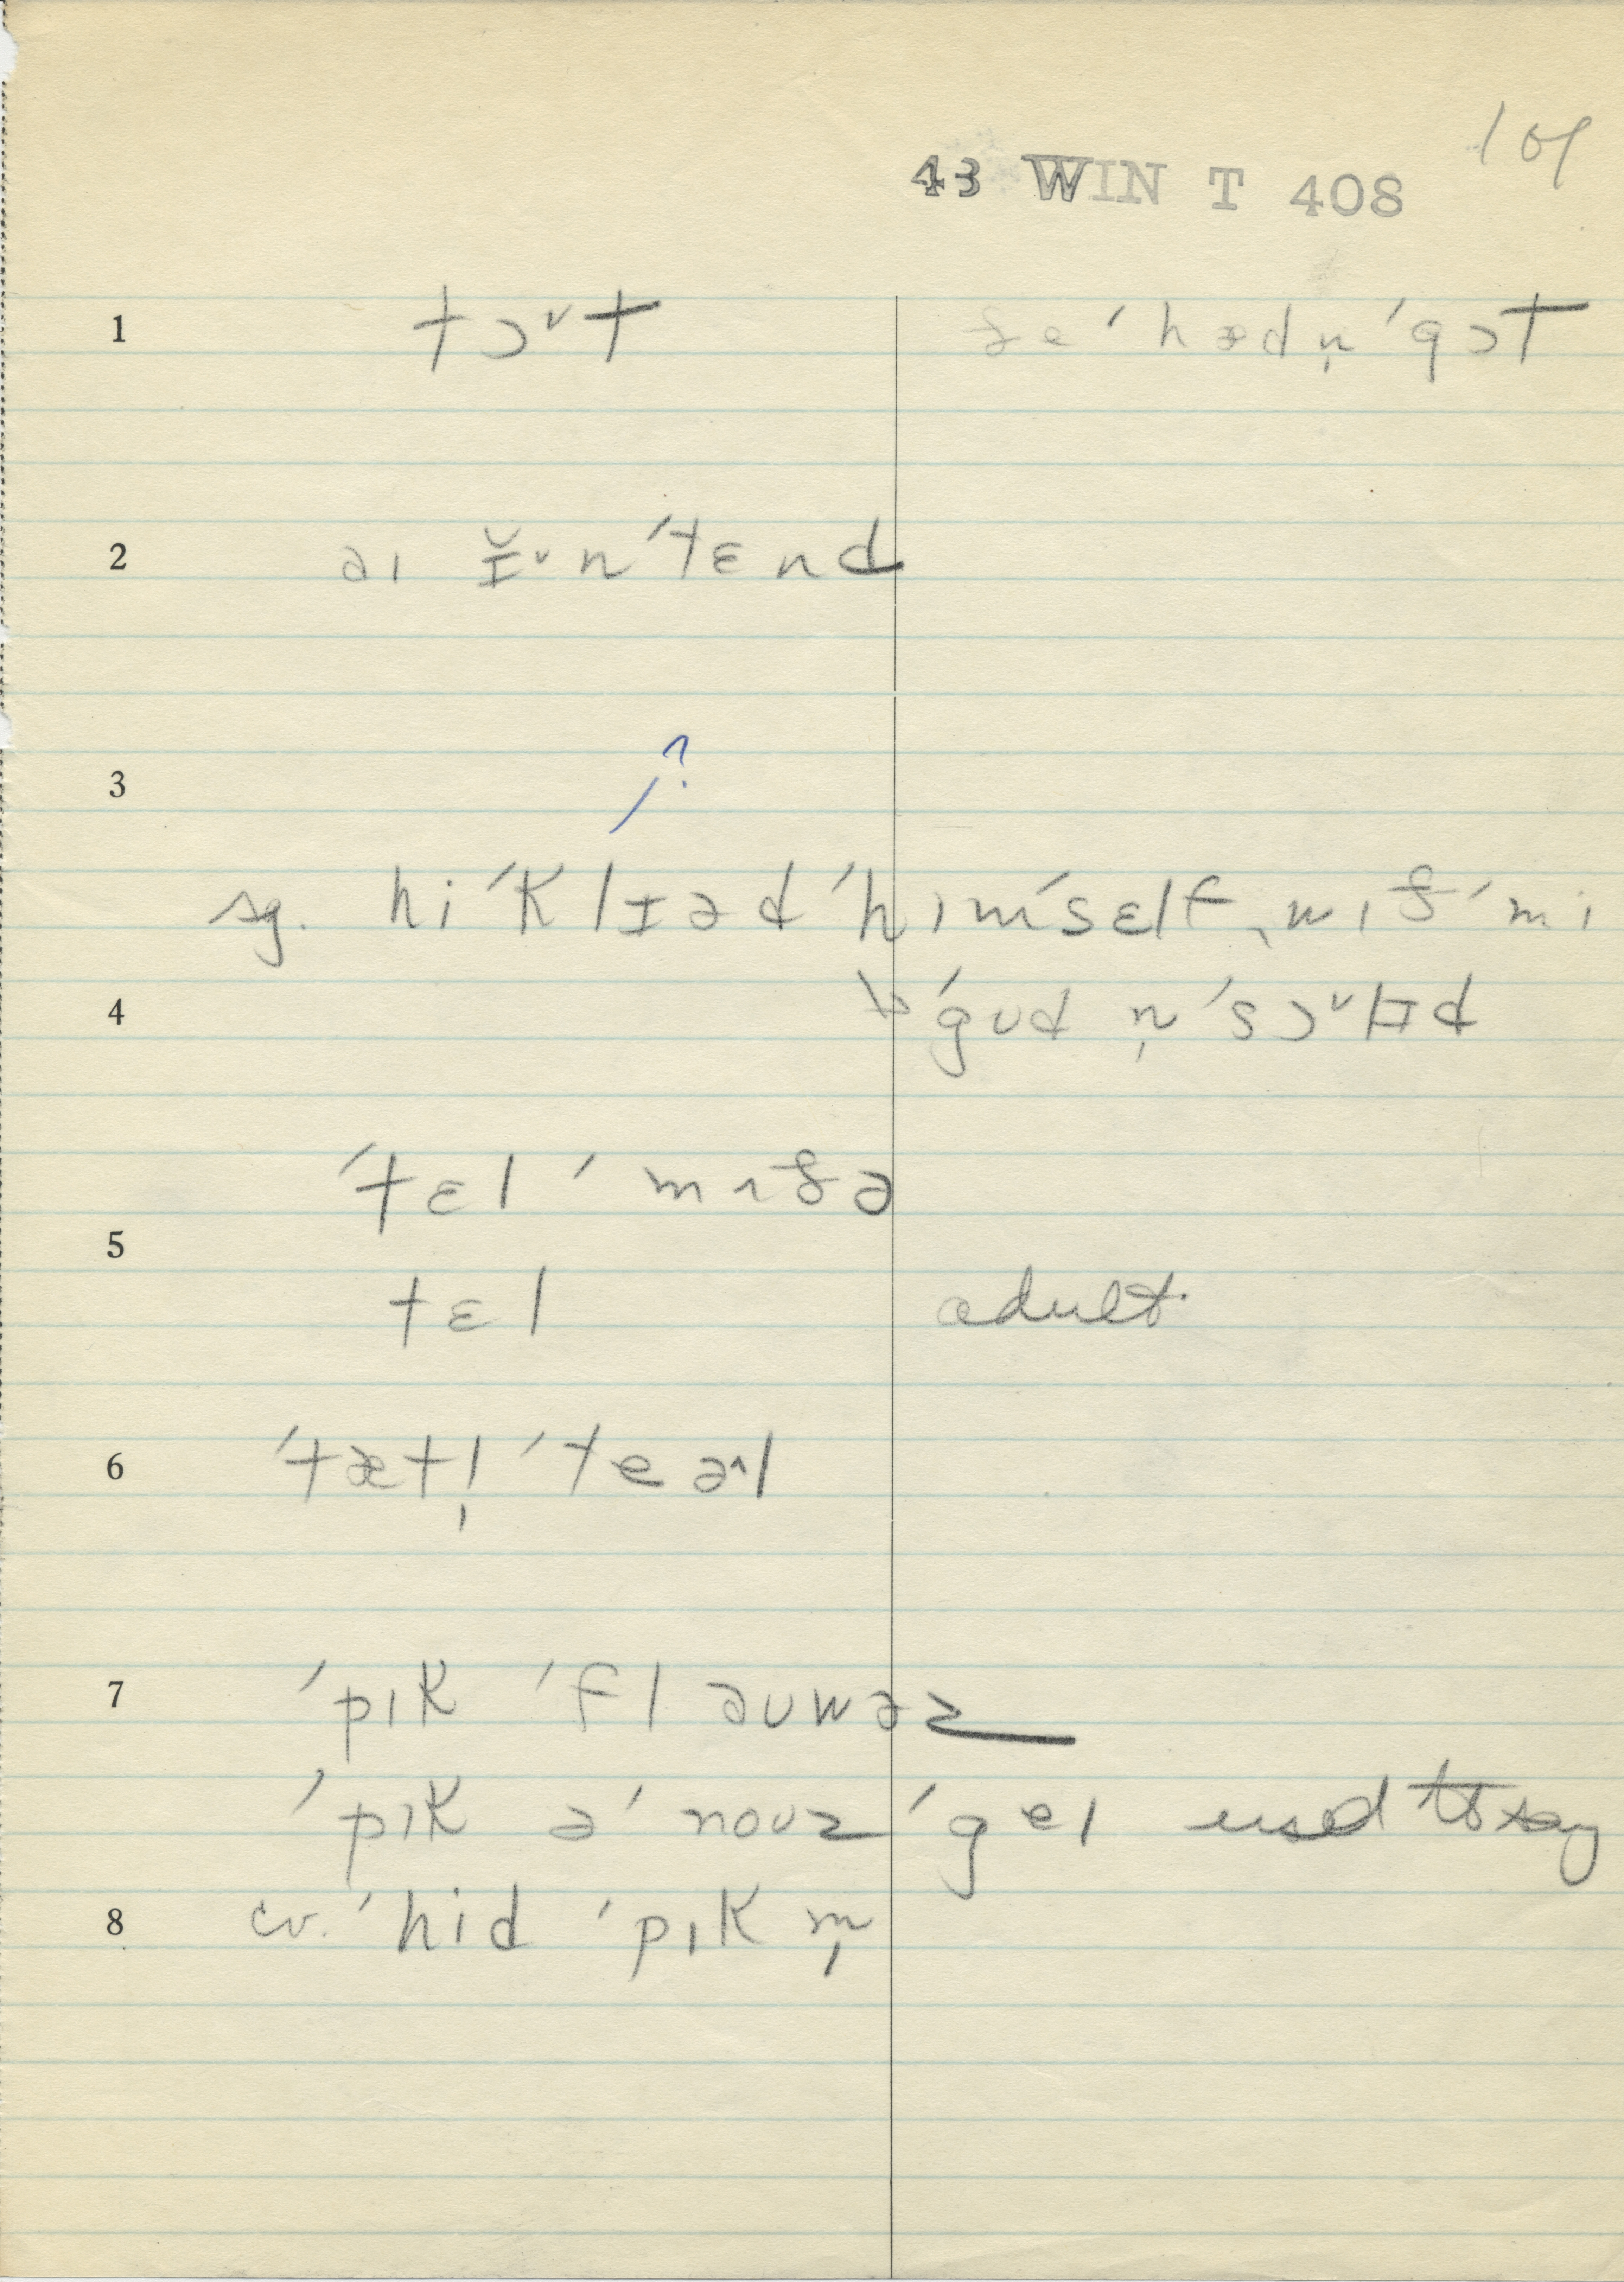 101
43 WIN T 408
1 tɔᵛt ðe ˈhædn̩ ˈgɔt
2 əɪ ɪ̆ᵛnˈtɛnd
3 ?
sg. hi ˈklɪəd ˈhɪmˈsɛlf, wɪð ˈmɪ
4 ˈgʊd n̩ ˈsɔᵛlɪd
ˈtɛl ˈmɪðə
5
tɛl adult
6 ˈtætl̩ ˈteə^l
7 ˈpɪk ˈfləʊwəz
ˈpɪk ə ˈnoʊz ˈgeɪ used to say
8 cv. ˈhid ˈpɪk m̩